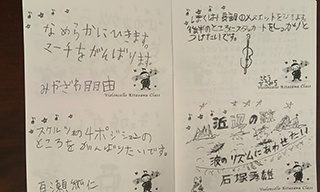 なめらかにひきます。
マーチをがんばります。
みやざわ朋由
Violoncello Kitazawa Class
ぼくは、長調のメヌエットをひきます。
後半のところ、スタッカートをしっかりと
つけたいです。
Violoncello Kitazawa Class
スケルツの4ポジションの
ところをがんばりたいです。
百瀬
仁
近
の
波のリズムにあわせたい
石塚
雄